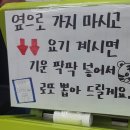 옆으로 가지 마시고
요기 계시면
기운 팍팍 넣어서
쿠폰 뽑아 드릴게요.